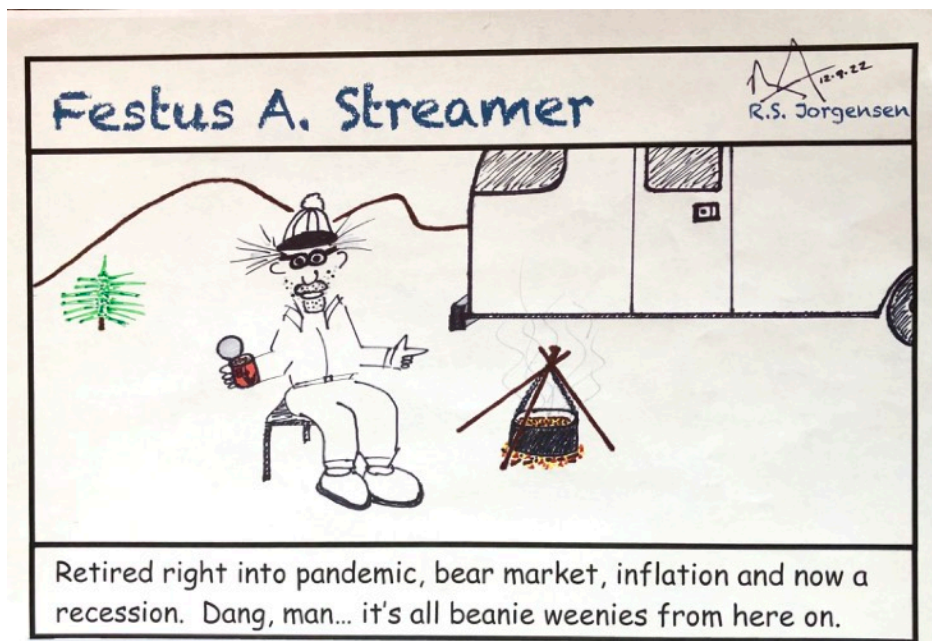 Festus A. Streamer
12.9.22
R.S. Jorgensen
Retired right into pandemic, bear market, inflation and now a
recession.  Dang, man... it's all beanie weenies from here on.